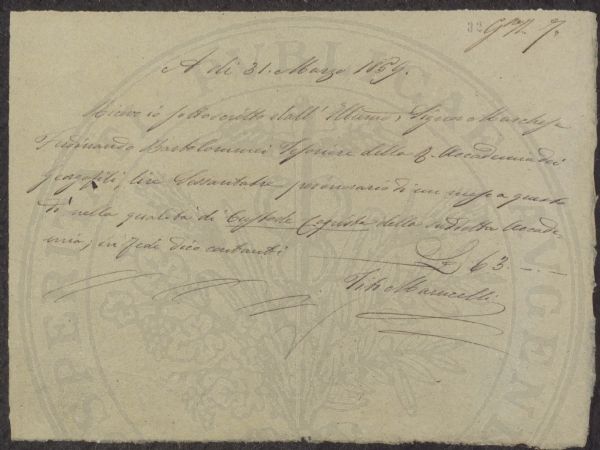 32 
A dì 31. Marzo 1869.
Ricevo io sottoscritto dall' Illumo, Signor Marchese
Ferdinando Bartolommei Tesoriere della R. Accademia dei
georgofili, lire Sessantatre per onorario di un mese a questo
dì nella qualità di Custode Copista della suddetta Accade
mia; in fede dico contanti £ 63. – –
Tito Marucelli
PUBLICA
SPERI